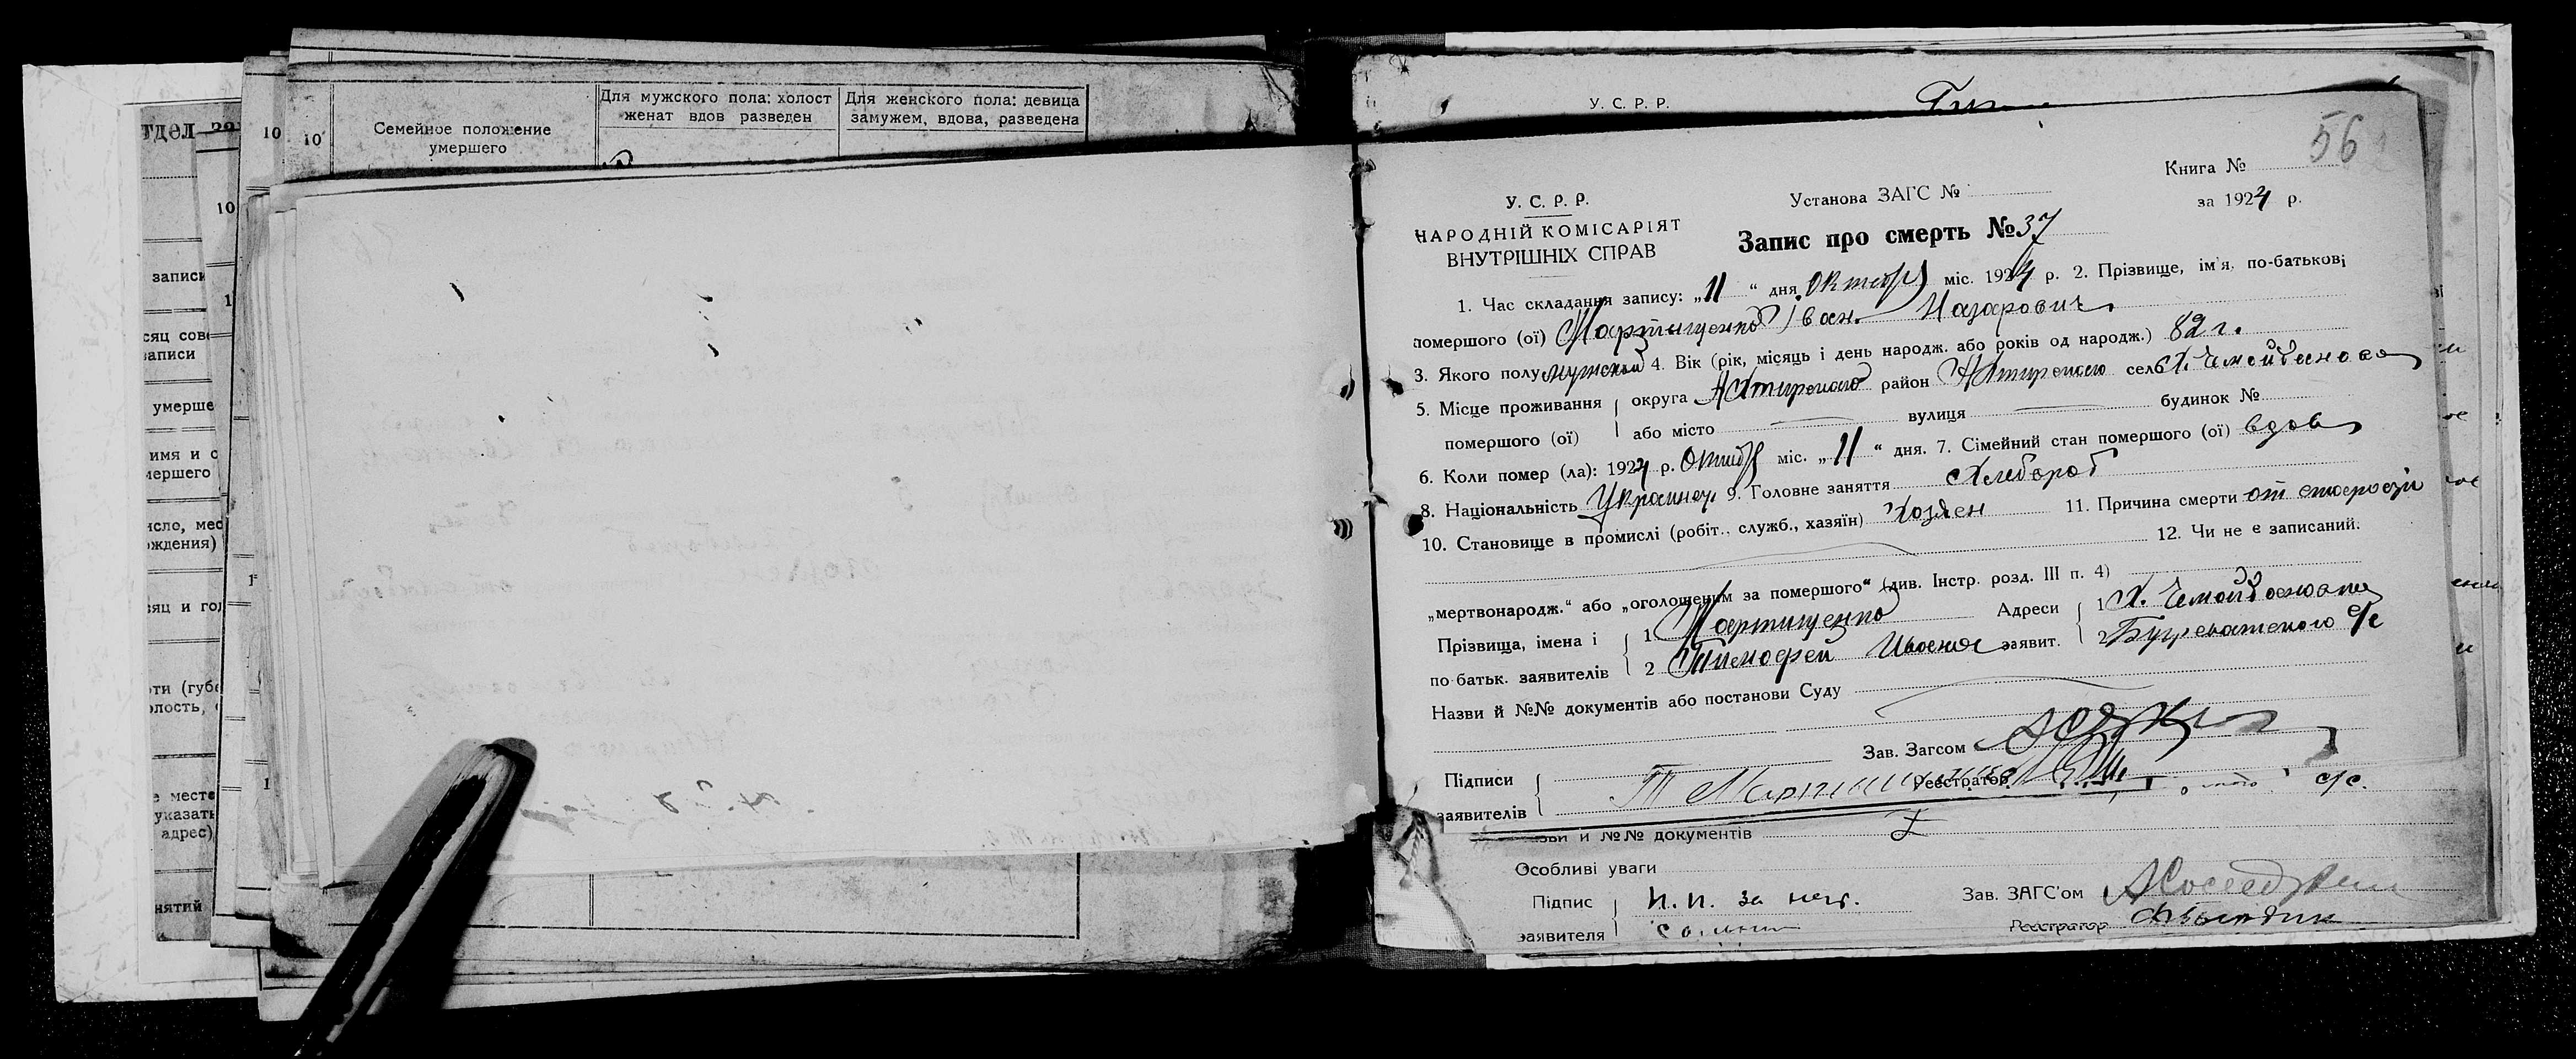 тдел
10
10
Семейное положение
умершего
Для мужского пола: холост
женат вдов разведен
Для женского пола: девица
замужем, вдова, разведена
10
записи
1
сяц сове
записи
умерше
имя и о
мершего
исло, мес
ождения)
1
сяц и год
ти (губе
олость,
1
е месте
указать
адрес)
нятий
У. С. Р. Р.
56
У. С. Р. Р.
НАРОДНІЙ КОМІСАРІЯТ
ВНУТРІШНІХ СПРАВ
Установа ЗАГС №
Книга №
за 1924 р.
Запис про смерть № 37
1. Час складання запису: „11“ дня Октябр міс. 1924 р. 2. Прізвище, ім'я, по-батькові
помершого (ої) Мартищенко Іван Назарович
3. Якого полу мужской 4. Вік (рік, місяць і день народж. або років од народж.) 82 г.
5. Місце проживання помершого (ої) округа Ахтирского район Ахтирского село Х. Чемойданова
або місто вулиця будинок №
6. Коли помер (ла): 1924 р. Октябр міс. „11“ дня. 7. Сімейний стан помершого (ої) вдов
8. Національність Украинец 9. Головне заняття Хлебороб
10. Становище в промислі (робіт., служб., хазяїн) Хозяен 11. Причина смерти от старости
12. Чи не є записаний.
„мертвонародж.“ або „оголошеним за помершого“ (див. Інстр. розд. III п. 4)
Прізвища, імена і по батьк. заявителів 1 Мартищенко Адреси заявит. 1 Х. Чемойданова
2 Тимофей Иванов 2 Бугреватского с/с
Назви й №№ документів або постанови Суду
Зав. Загсом
Підписи заявителів Т Мартищенко Реєстратор
с/с.
и №№ документів
Особливі уваги
Підпис заявителя И. И. за нег. Зав. ЗАГС'ом
Реєстратор